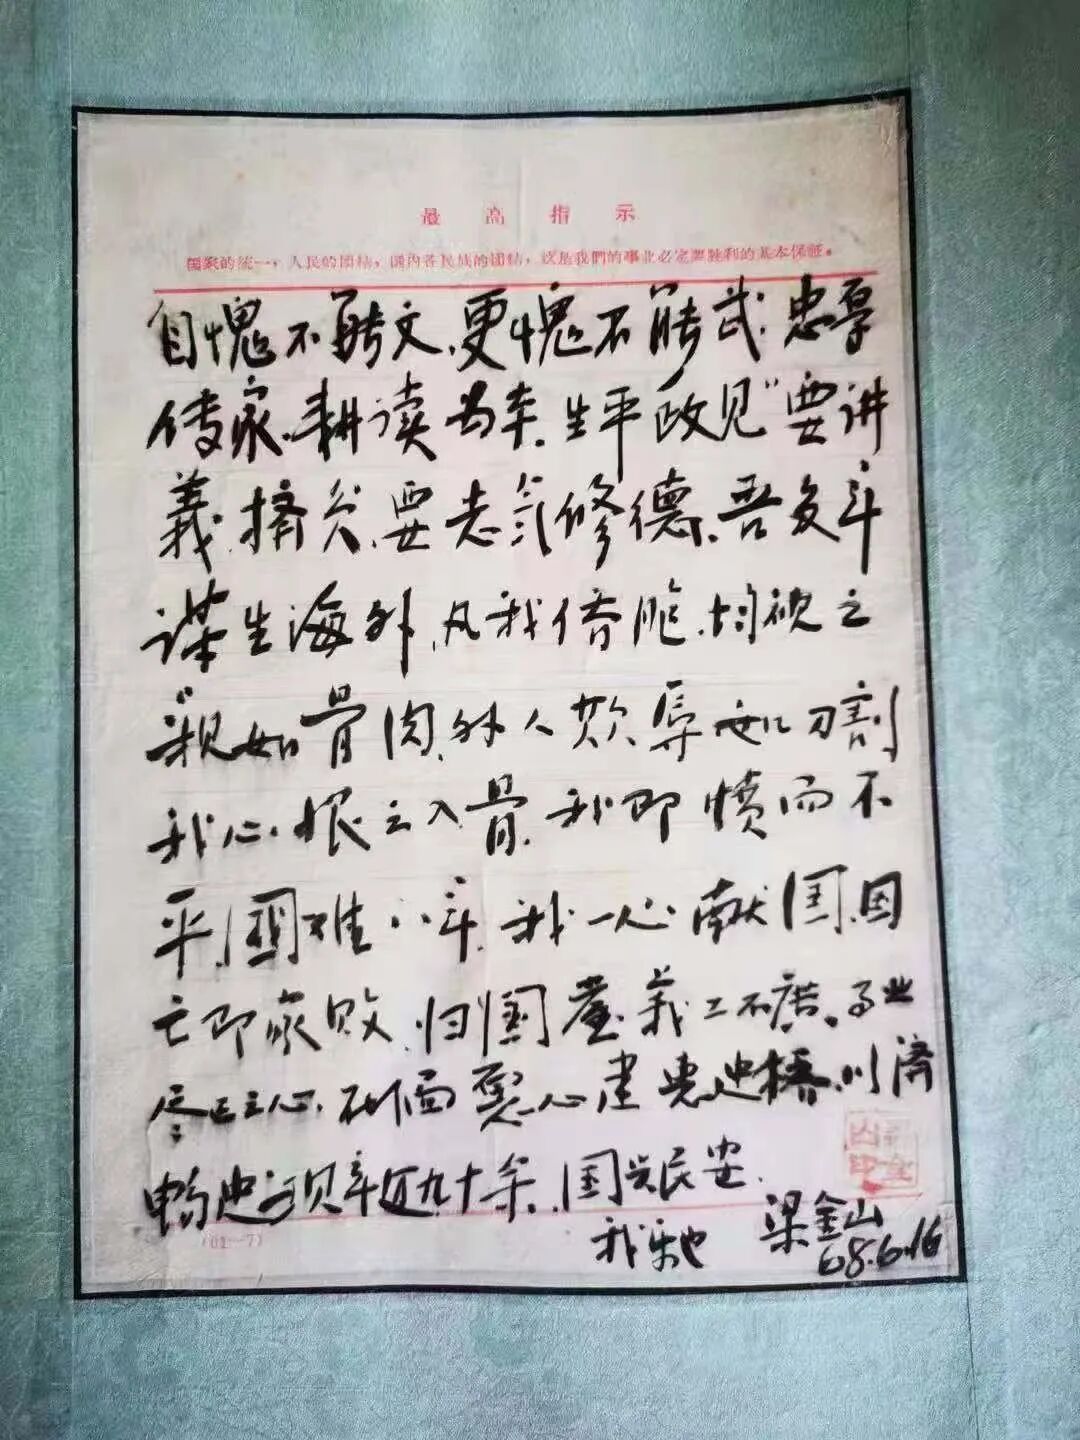 最高指示
国家的统一，人民的团结，国内各民族的团结，这是我們的事业必定要胜利的基本保証。
自愧不能文、更愧不能武、忠厚
传家、耕读为本、生平政见"要讲
義、要志气修德、吾多年
谋生海外、凡我侨胞、均视之
"亲如骨肉、外人欺辱如刀割
我心、恨之入骨、我即愤而不
平、國难八年、我一心献国、国
亡即家败、归國
心、心建惠通桥、济
年近九十余、国兴民安、
我乐也 梁金山
68.6.16
(01—7)